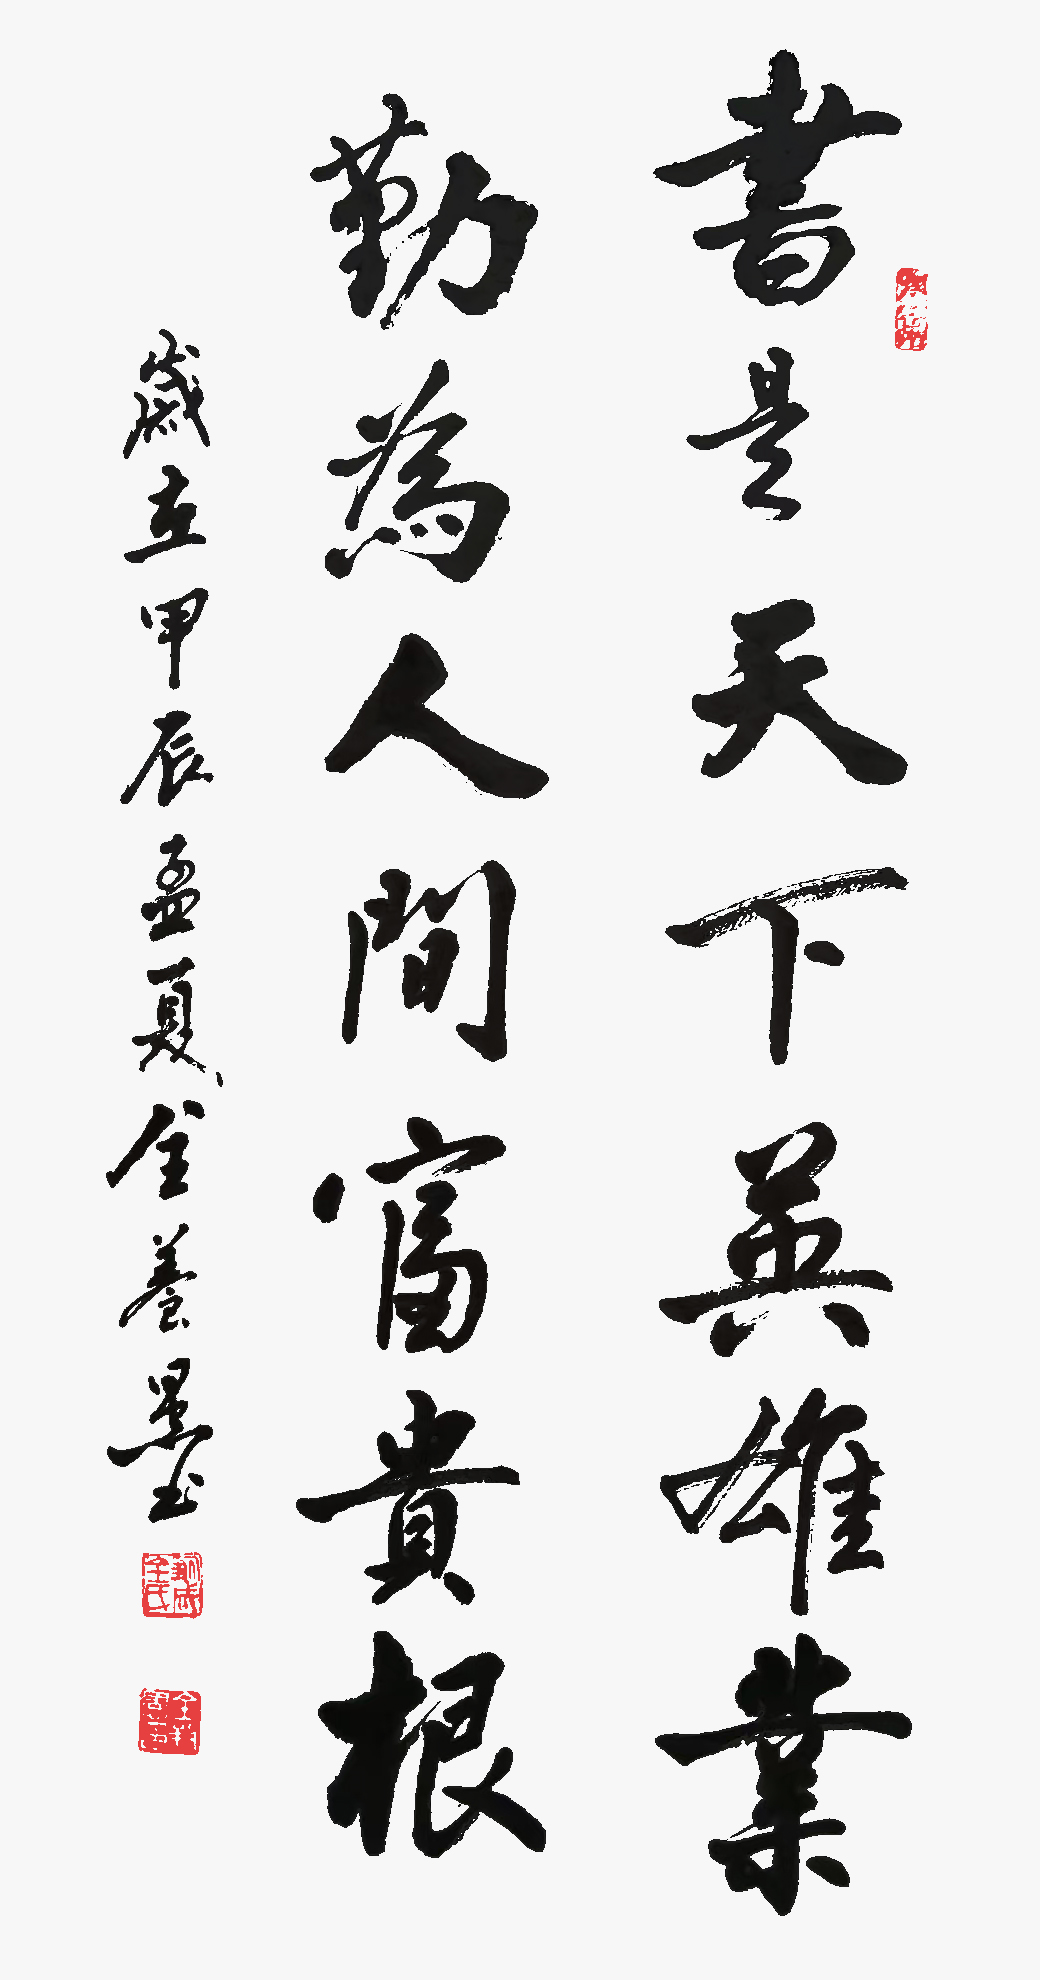 書是天下英雄業
勤為人間富貴根
歲在甲辰孟夏全養墨书